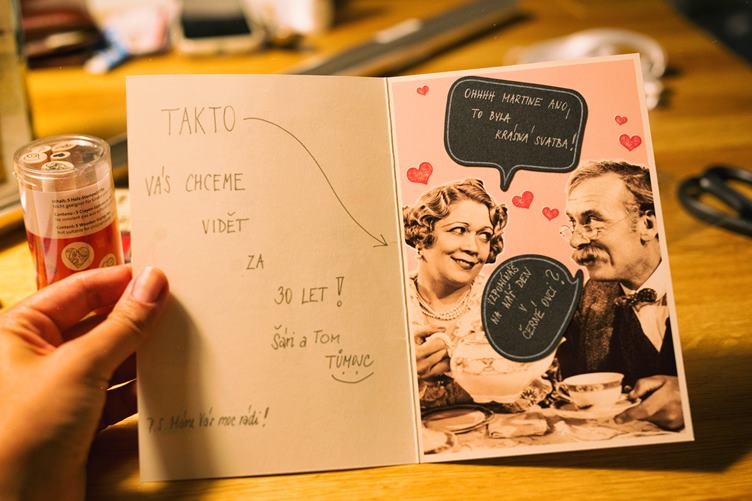 TAKTO
VÁS CHCEME
VIDĚT
ZA
30 LET!
Šári a Tom
TŮMOVC
P.S. Máme Vás moc rádi!
OHHHH MARTINE ANO,
TO BYLA
KRÁSNÁ SVATBA!
VZPOMÍNÁŠ
NA NÁŠ DEN
V
ČERNÉ OVCI?